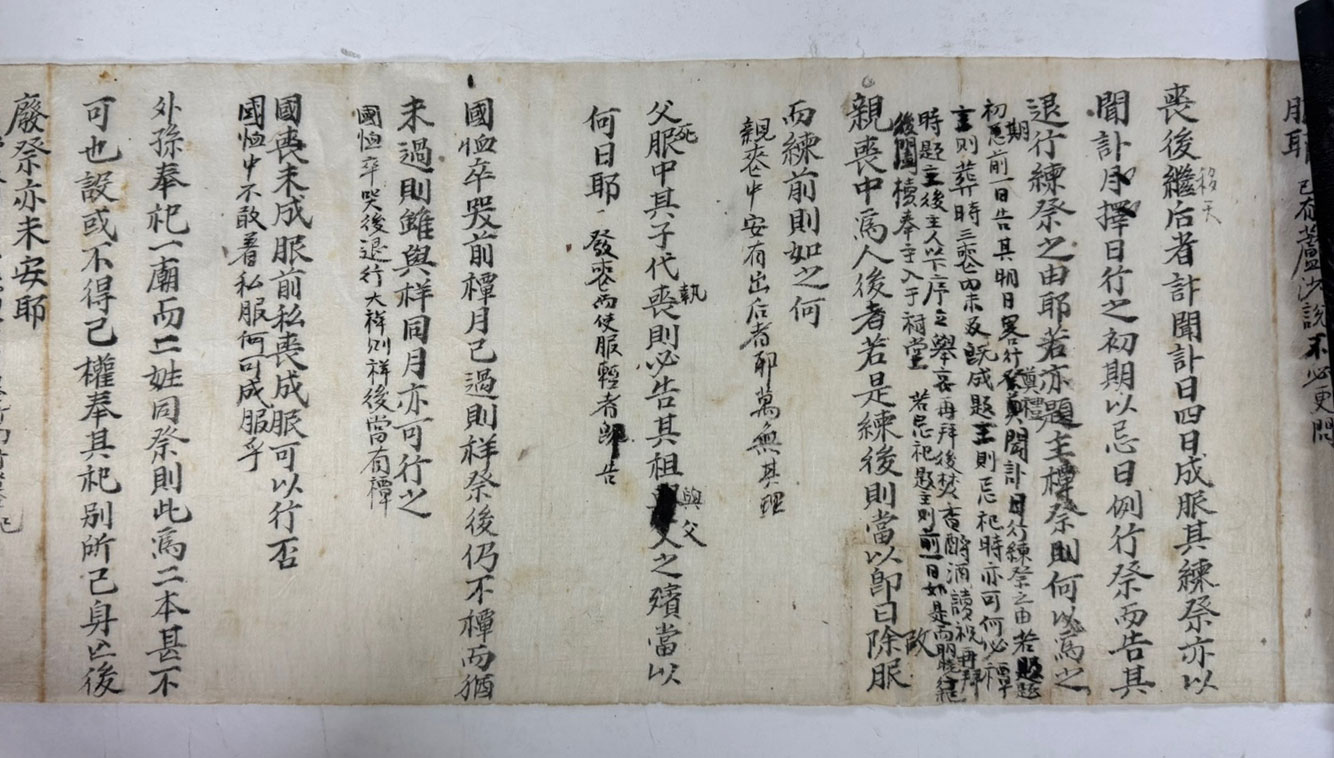 服耶 已在蘆沙說不必更問
移天
喪後繼后者訃聞訃日四日成服其練祭亦以
聞訃月擇日行之初期以忌日例行祭而告其
退行練祭之由耶若亦題主禫祭則何以爲之
初期前一日告其明日畧行奠禮聞訃日行練祭之由若題
主則葬時三喪內未及旣成題主則忌祀時亦可何必禫
時題主後主人以下序立舉哀再拜後焚香酹酒讀祝再拜
後闔櫝奉主入于祠堂 若忌祀題主則前一日如是而
親喪中爲人後者若是練後則當以卽日除服
而練前則如之何 改
親喪中安有出后者耶萬無其理
父死服中其子代執喪則必告其祖與父之殯當以
何日耶 發喪而使服輕者告
國恤卒哭前禫月已過則祥祭後仍不禫而猶
未過則雖與祥同月亦可行之
國恤卒哭後退行大祥則祥後當有禫
國喪未成服前私喪成服可以行否
國恤中不敢着私服何可成服乎
外孫奉祀一廟而二姓同祭則此爲二本甚不
可也設或不得已權奉其祀別所己身亡後
廢祭亦未安耶